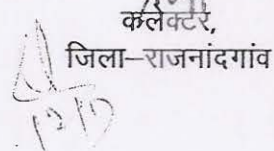 कलेक्टर,
जिला–राजनांदगांव